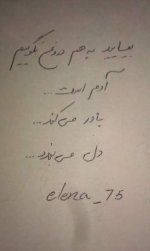 بیایید به هم دروغ نگوییم
آدم است...
باور می‌کند...
دل می‌بندد...
elena_75